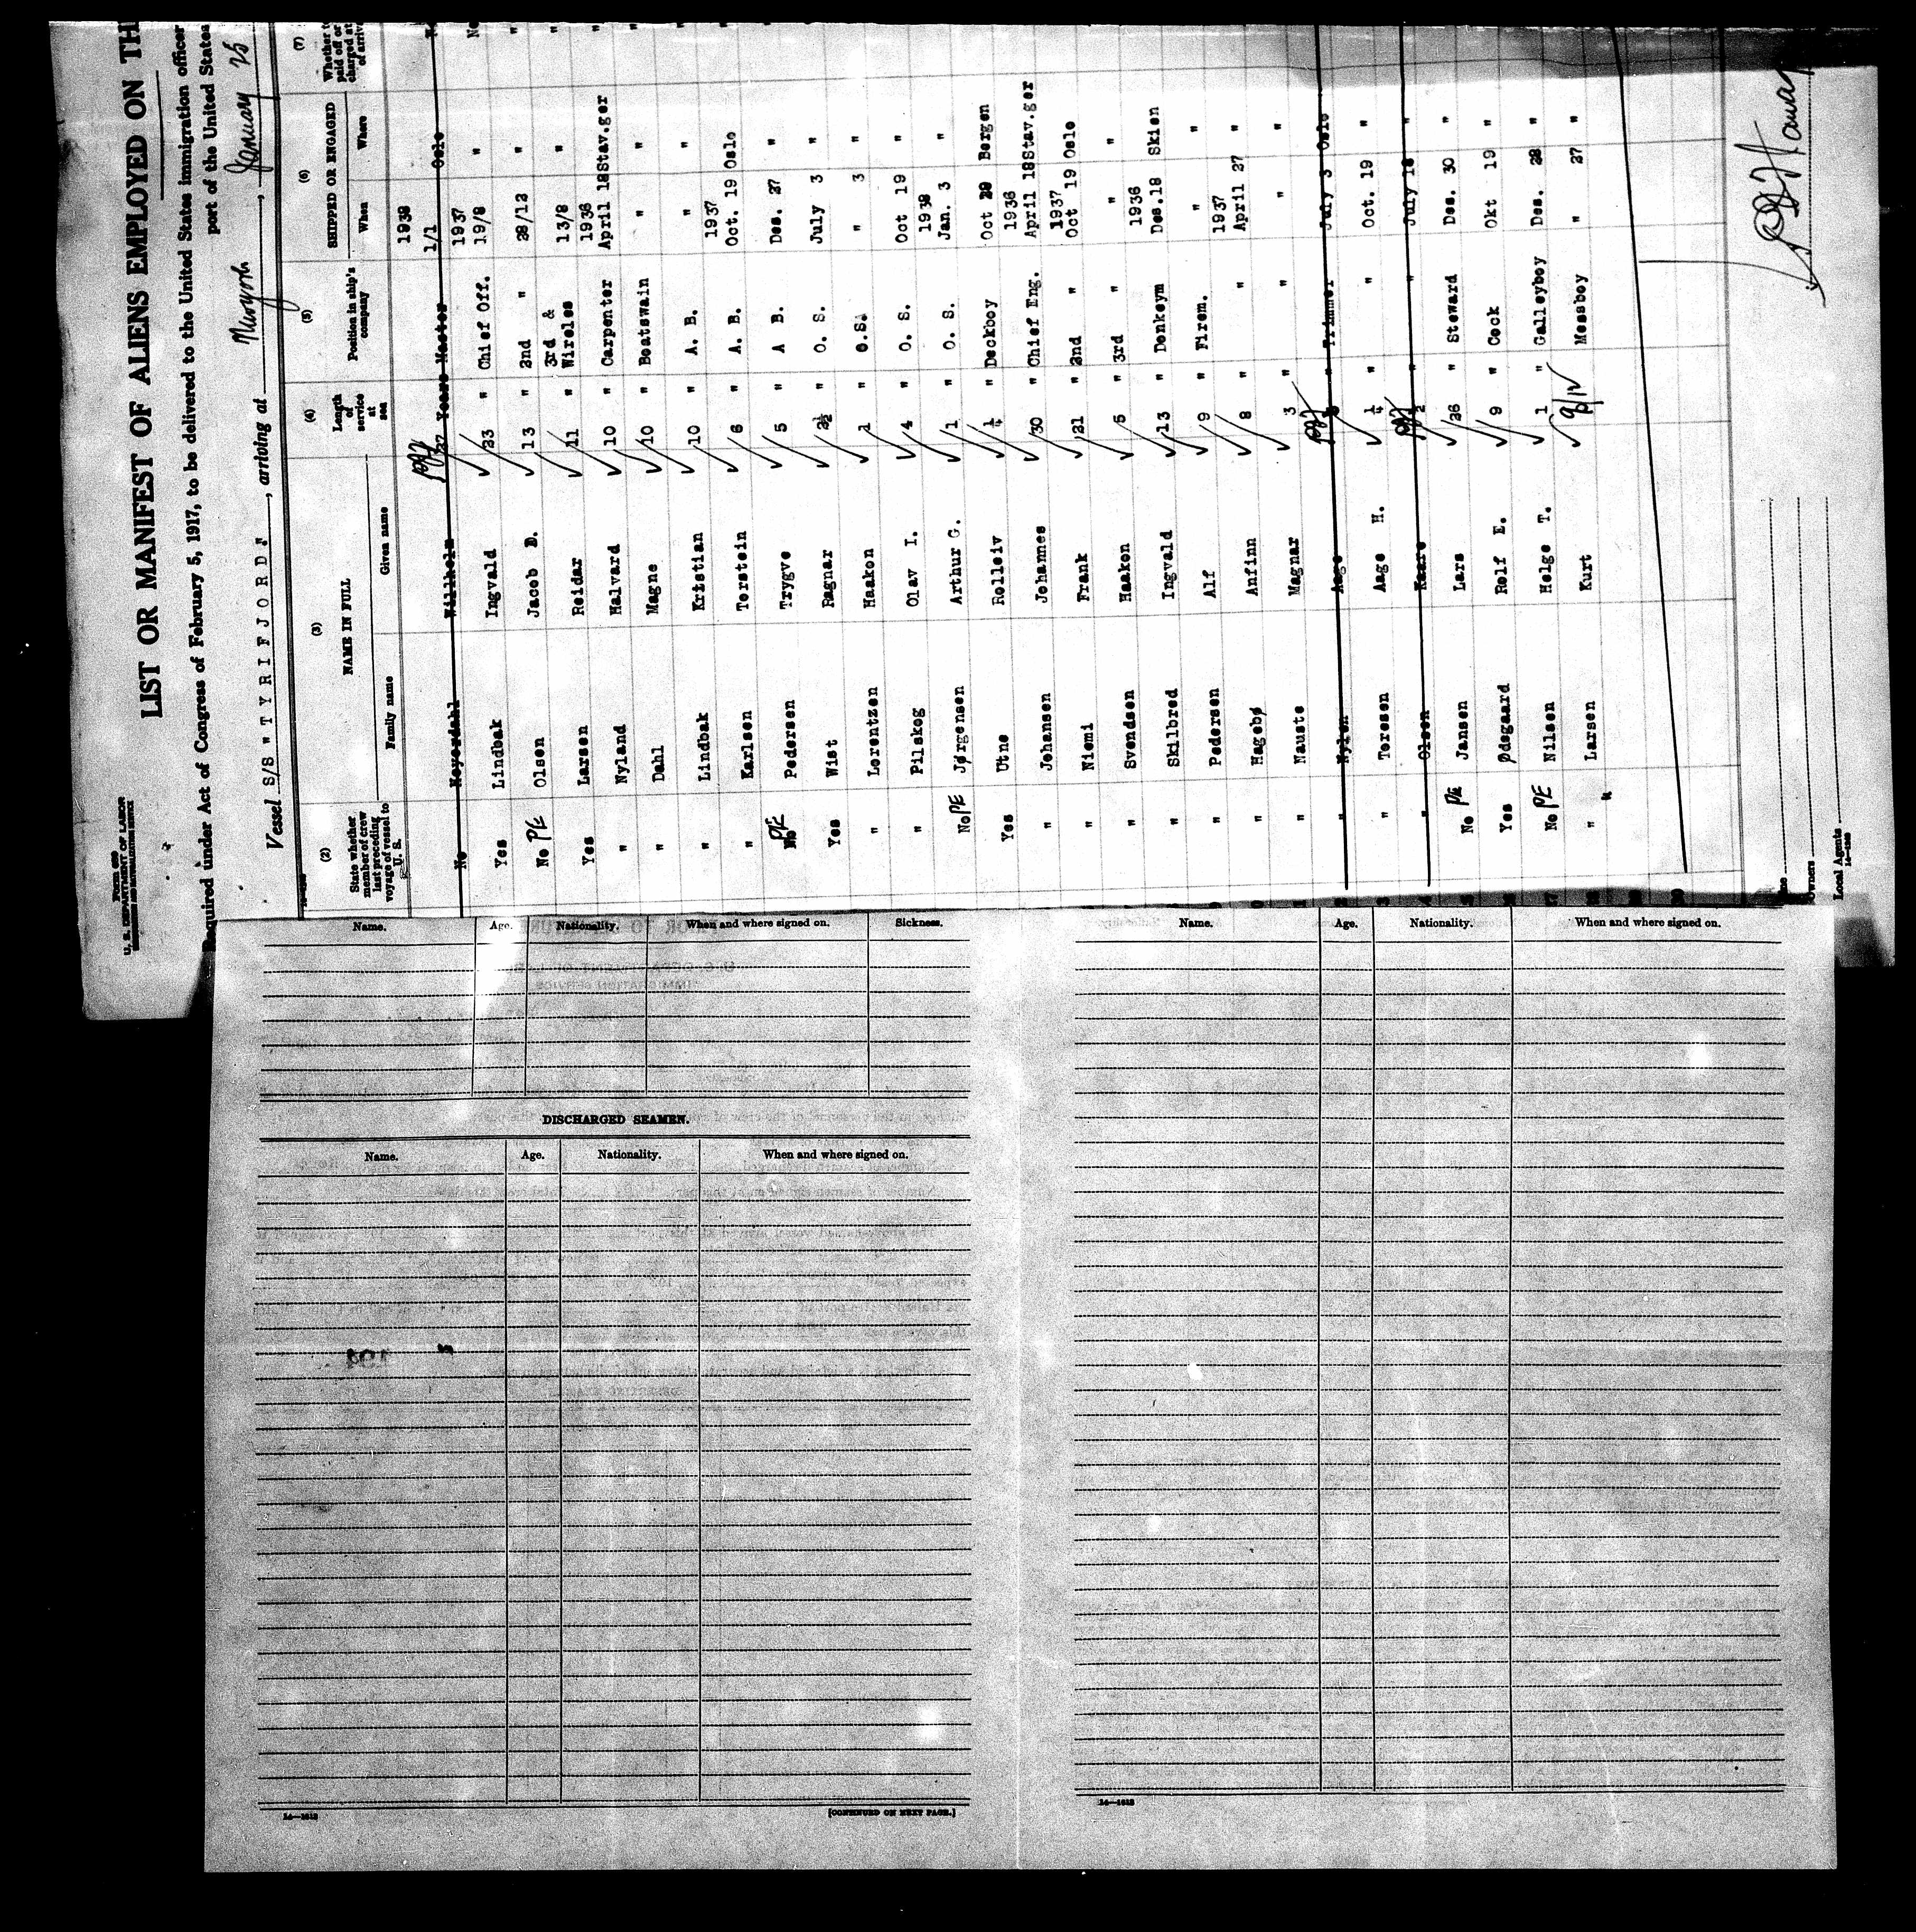 Form 680
U. S. DEPARTMENT OF LABOR
LIST OR MANIFEST OF ALIENS EMPLOYED ON TH
Required under Act of Congress of February 5, 1917, to be delivered to the United States immigration officer
port of the United States
Vessel S/S "TYRIFJORD", arriving at Newyork, January 25
(2) (3) (4) (5) (6) (7)
State whether member of crew last preceding voyage of vessel to U. S. NAME IN FULL Length of service at sea Position in ship's company SHIPPED OR ENGAGED Whether
Family name Given name When Where
1938
No Heyerdahl Wilhelm 27 Years Master 1/1 Oslo
1937
Yes Lindbak Ingvald 23 " Chief Off. 19/8 "
No PE Olsen Jacob D. 13 " 2nd " 28/12 "
Yes Larsen Reidar 11 " 3rd & Wireles 13/8 "
1936
" Nyland Halvard 10 " Carpenter April 18 Stav.ger
" Dahl Magne 10 " Boatswain " "
" Lindbak Kristian 10 " A. B. " "
1937
" Karlsen Torstein 6 " A. B. Oct. 19 Oslo
No PE Pedersen Trygve 5 " A B. Des. 27 "
Yes Wist Ragnar 2½ " O. S. July 3 "
" Lorentzen Haakon " O.S. " 3 "
" Pilskog Olav I. 4 " O. S. Oct 19 "
1938
No PE Jørgensen Arthur G. 1 " O. S. Jan. 3 "
Yes Utne Rolleiv ¼ " Deckboy Oct Bergen
1936
" Johansen Johannes 30 " Chief Eng. April 18 Stav.ger
1937
" Niemi Frank 21 " 2nd " Oct 19 Oslo
" Svendsen Haakon 5 " 3rd " " "
1936
" Skilbred Ingvald 13 " Donkeym Des. 18 Skien
" Pedersen Alf 9 " Firem. " "
1937
" Hagebø Anfinn 8 " " April 27 "
" Nauste Magnar 3 " " " "
" Nylen Aage " Trimmer July 3 Oslo
" Toresen Aage H. ¼ " " Oct. 19 "
" Olsen Kaare ½ " " July 18 "
No PE Jansen Lars 26 " Steward Des. 30 "
Yes Ødegaard Rolf E. 9 " Cock Okt 19 "
No PE Nilsen Helge T. 1 " Galleyboy Des. 28 "
" Larsen Kurt 9/12 Messboy " 27 "
Owners
Local Agents
Name. Age. Nationality. When and where signed on. Sickness.
DISCHARGED SEAMEN.
Name. Age. Nationality. When and where signed on.
[CONTINUED ON NEXT PAGE.]
Name. Age. Nationality. When and where signed on.